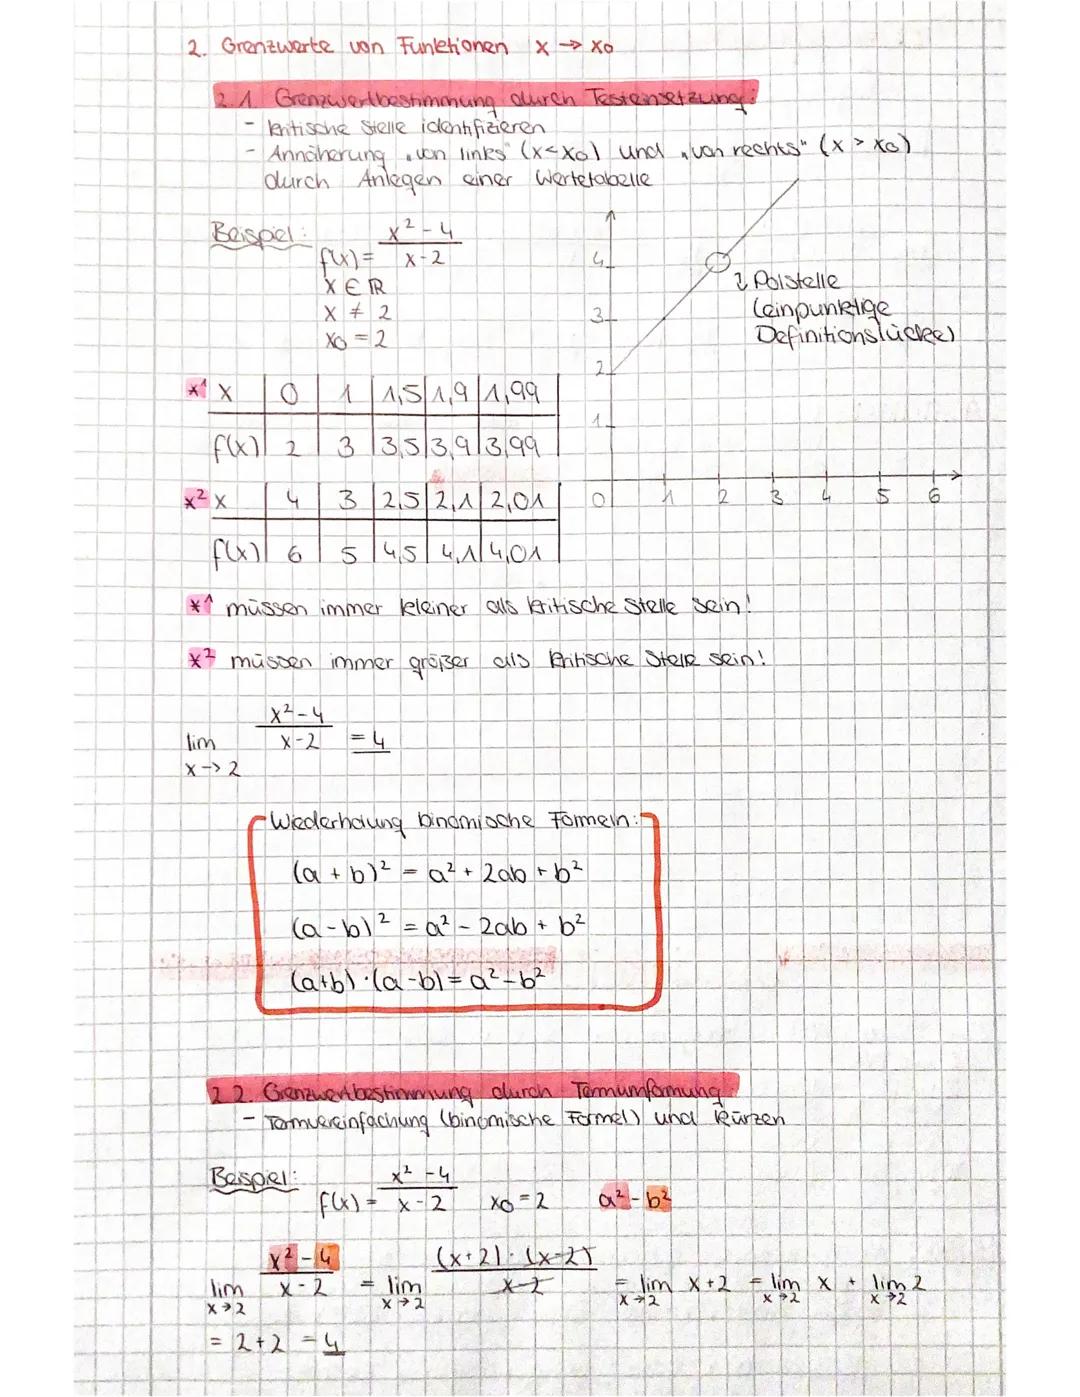 2. Grenzwerte von Funktionen x → x₀
2.1. Grenzwertbestimmung durch Testeinsetzung:
- kritische Stelle identifizieren
- Annäherung „von links" (x<x₀) und „von rechts" (x > x₀)
durch Anlegen einer Wertetabelle
Beispiel: f(x) = (x² - 4)/(x - 2)
x ∈ ℝ
x ≠ 2
x₀ = 2
4
3
2
1
0 1 2 3 4 5 6
Polstelle
(einpunktige
Definitionslücke)
*1 x | 0 | 1 | 1,5 | 1,9 | 1,99
f(x) | 2 | 3 | 3,5 | 3,9 | 3,99
*2 x | 4 | 3 | 2,5 | 2,1 | 2,01
f(x) | 6 | 5 | 4,5 | 4,1 | 4,01
*1 müssen immer kleiner als kritische Stelle sein!
*2 müssen immer größer als kritische Stelle sein!
lim x→2 (x² - 4)/(x - 2) = 4
Wiederholung binomische Formeln:
(a + b)² = a² + 2ab + b²
(a - b)² = a² - 2ab + b²
(a+b) · (a-b) = a² - b²
2.2. Grenzwertbestimmung durch Termumformung
- Termvereinfachung (binomische Formel) und Kürzen
Beispiel: f(x) = (x² - 4)/(x - 2) x₀ = 2 a² - b²
lim x→2 (x² - 4)/(x - 2) = lim x→2 ((x+2) · (x-2))/(x-2) = lim x→2 x+2 = lim x→2 x + lim x→2 2
= 2+2 = 4